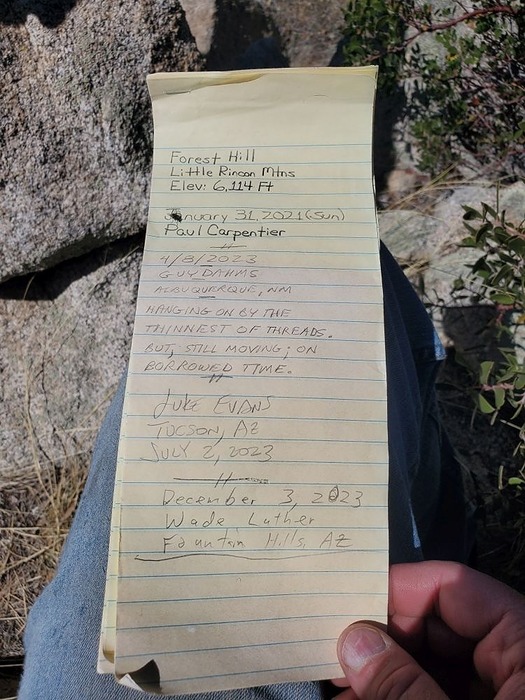 Forest Hill
Little Rincon Mtns
Elev: 6,114 Ft
January 31, 2021 (Sun)
Paul Carpentier
4/8/2023
GUY DAHMS
ALBUQUERQUE, NM
HANGING ON BY THE
THINNEST OF THREADS.
BUT, STILL MOVING; ON
BORROWED TIME.
LUKE EVANS
TUCSON, AZ
JULY 2, 2023
December 3, 2023
Wade Luther
Fountain Hills, AZ